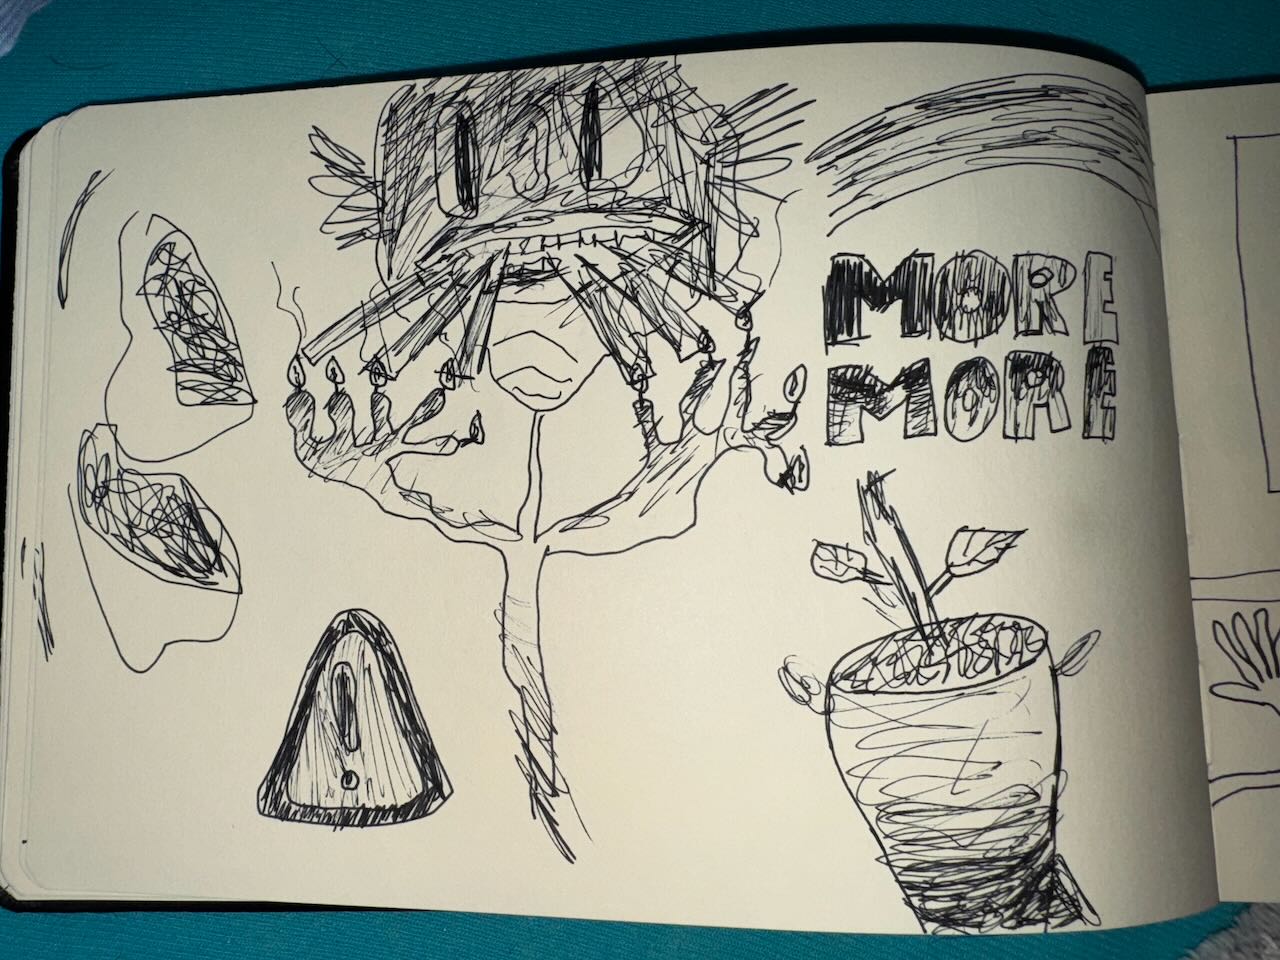 MORE
MORE
!